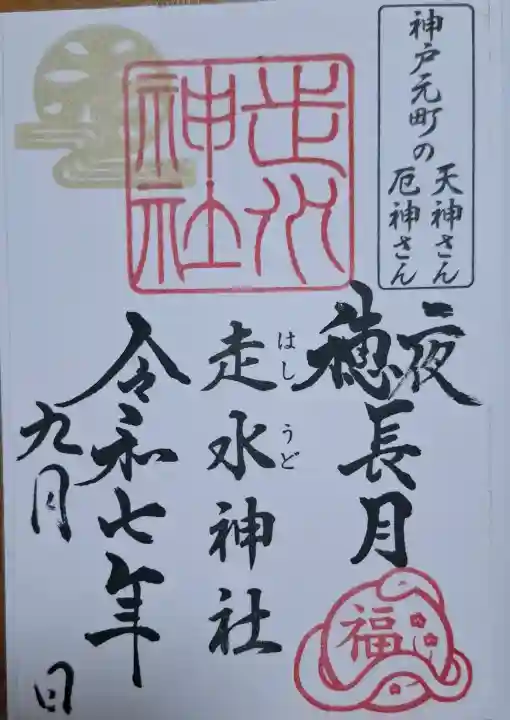 神戸元町の
天神さん
厄神さん
夜
穂
長月
走水神社
はしうど
走水神社
令和七年
九月
日
福